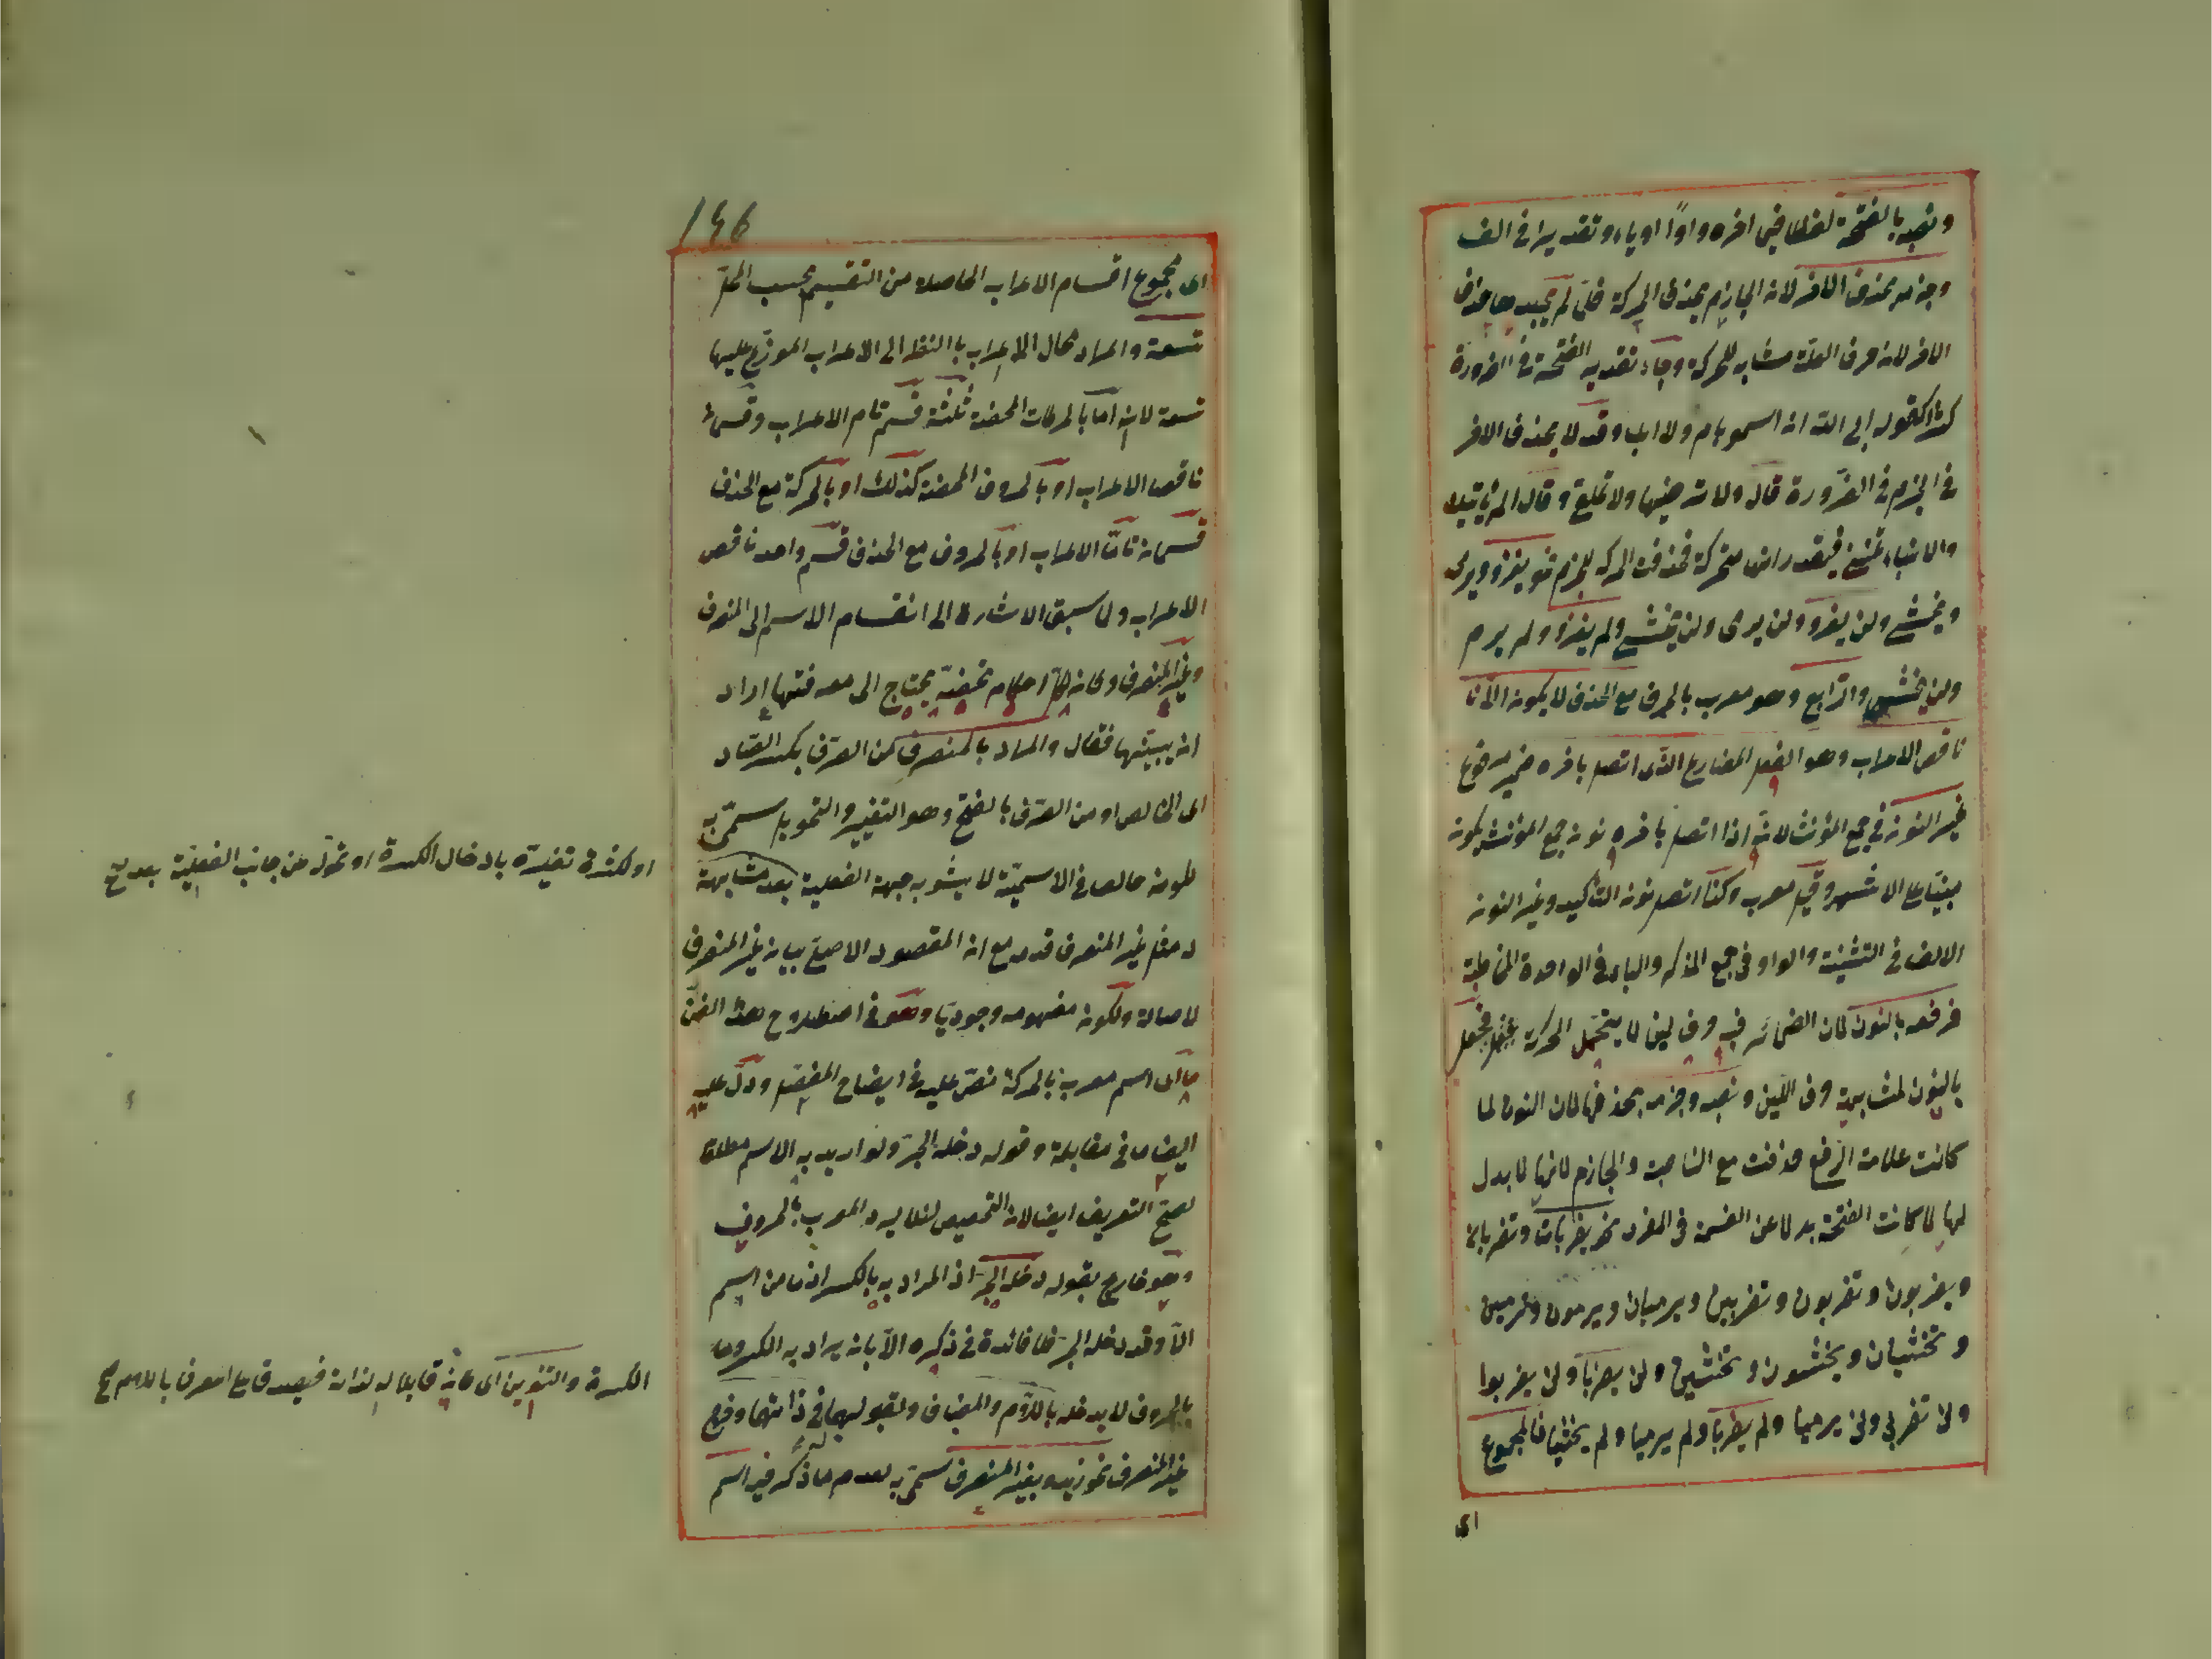 ونصبه بالفتحة لفظا فيما اخره واوا او ياء وتقديرا في الف
وجزمه بحذف الاخر لان الجازم يحذف الحركة فلما لم يجدها حذف
الاخر لانه حرف العلة مشابه للحركة وجاء تقدير الفتحة في الضرورة
كثيرا كقوله ابى الله ان اسمو بام ولا اب وقد لا يحذف الاخر
في الجزم في الضرورة قال ولا ترضيها ولا تملق وقال الم يأتيك
والانباء تنمى فيقدر انها متحركة فحذفت الحركة للجزم نحو يغزو ويرمى
ويخشى ولن يغزو ولن يرمى ولن يخشى ولم يغزو ولم يرم
ولم يخش والرابع وهو معرب بالحرف مع الحذف لا يكون الا
ناقص الاعراب وهو الفعل المضارع الذى اتصل باخره ضمير مرفوع
غير النون في جمع المؤنث لانه اذا اتصل باخره نون جمع المؤنث يكون
مبنيا على الاشهر وقيل معرب وكذا اتصل نون التأكيد وغير النون
الالف في التثنية والواو في جمع المذكر والياء في الواحدة المخاطبة
فرفعه بالنون لان الضمائر فيه حروف لين لا يتحمل الحركة فجعل
بالنون لمشابهته حروف اللين ونصبه وجزمه بحذفها لان النون لما
كانت علامة الرفع حذفت مع الناصبة والجازم لانها لا بدل
لها لما كانت الفتحة بدلا عن الضمة في المفرد نحو يضربان وتضربان
ويضربون وتضربون وتضربين ويرميان ويرمون وترمين
وتخشيان ويخشون وتخشين ولن يضربا ولن يضربوا
ولن تضربى ولن يرميا ولم يضربا ولم يرميا ولم يخشيا فالمجموع
اى
146
اى مجموع اقسام الاعراب الحاصلة من التقسيم بحسب المحل
تسعة والمراد محال الاعراب بالنظر الى الاعراب الموزع عليها
تسعة لانه اما بالحركات المحضة ثلثة قسم تام الاعراب وقسمى
ناقص الاعراب او بالحروف المحضة كذلك او بالحركة مع الحذف
قسمان تاما الاعراب او بالحروف مع الحذف قسم واحد ناقص
الاعراب ولما سبق الاشارة الى انقسام الاسم الى المنصرف
وغير المنصرف وكان لكل احكام مختصة يحتاج الى معرفتها اراد
ان يبينها فقال والمراد بالمنصرف من الصرف بكسر الصاد
اى الخالص او من الصرف بالفتح وهو التغيير والتحويل سمى به
لكونه خالصا في الاسمية لا يشوبه جهة الفعلية بعد مشابهة
او لكثرة تغيره بادخال الكسرة او تحوله من جانب الفعلية بعد صح
له مثل غير المنصرف قدمه مع ان المقصود الاصلى بيان غير المنصرف
لاصالته ولكون مفهومه وجوديا وهو في اصطلاح هذا الفن
ما اى اسم معرب بالحركة نص عليه في ايضاح المفصل ودل عليه
ايضا ما في مقابلة وقوله دخله الجر ولو اريد به الاسم مطلقا
لصح التعريف ايضا لان التخصيص لئلا يرد المعرب بالحروف
وهو خارج بقوله دخله الجر اذ المراد به بالكسر اذ ما من اسم
الا وقد دخله الجر فلا فائدة في ذكره الا بان يراد به الكسر وما
بالحروف لا يدخله باللام والمضاف ولقبولهما في ذاتهما وقع
الكسرة والتنوين اى كانه قابلا له لذاته فيصدق على المعرف باللام صح
غير المنصرف نحو زيد وبغير المنصرف سمى به لعدم ما ذكر فيه اسم